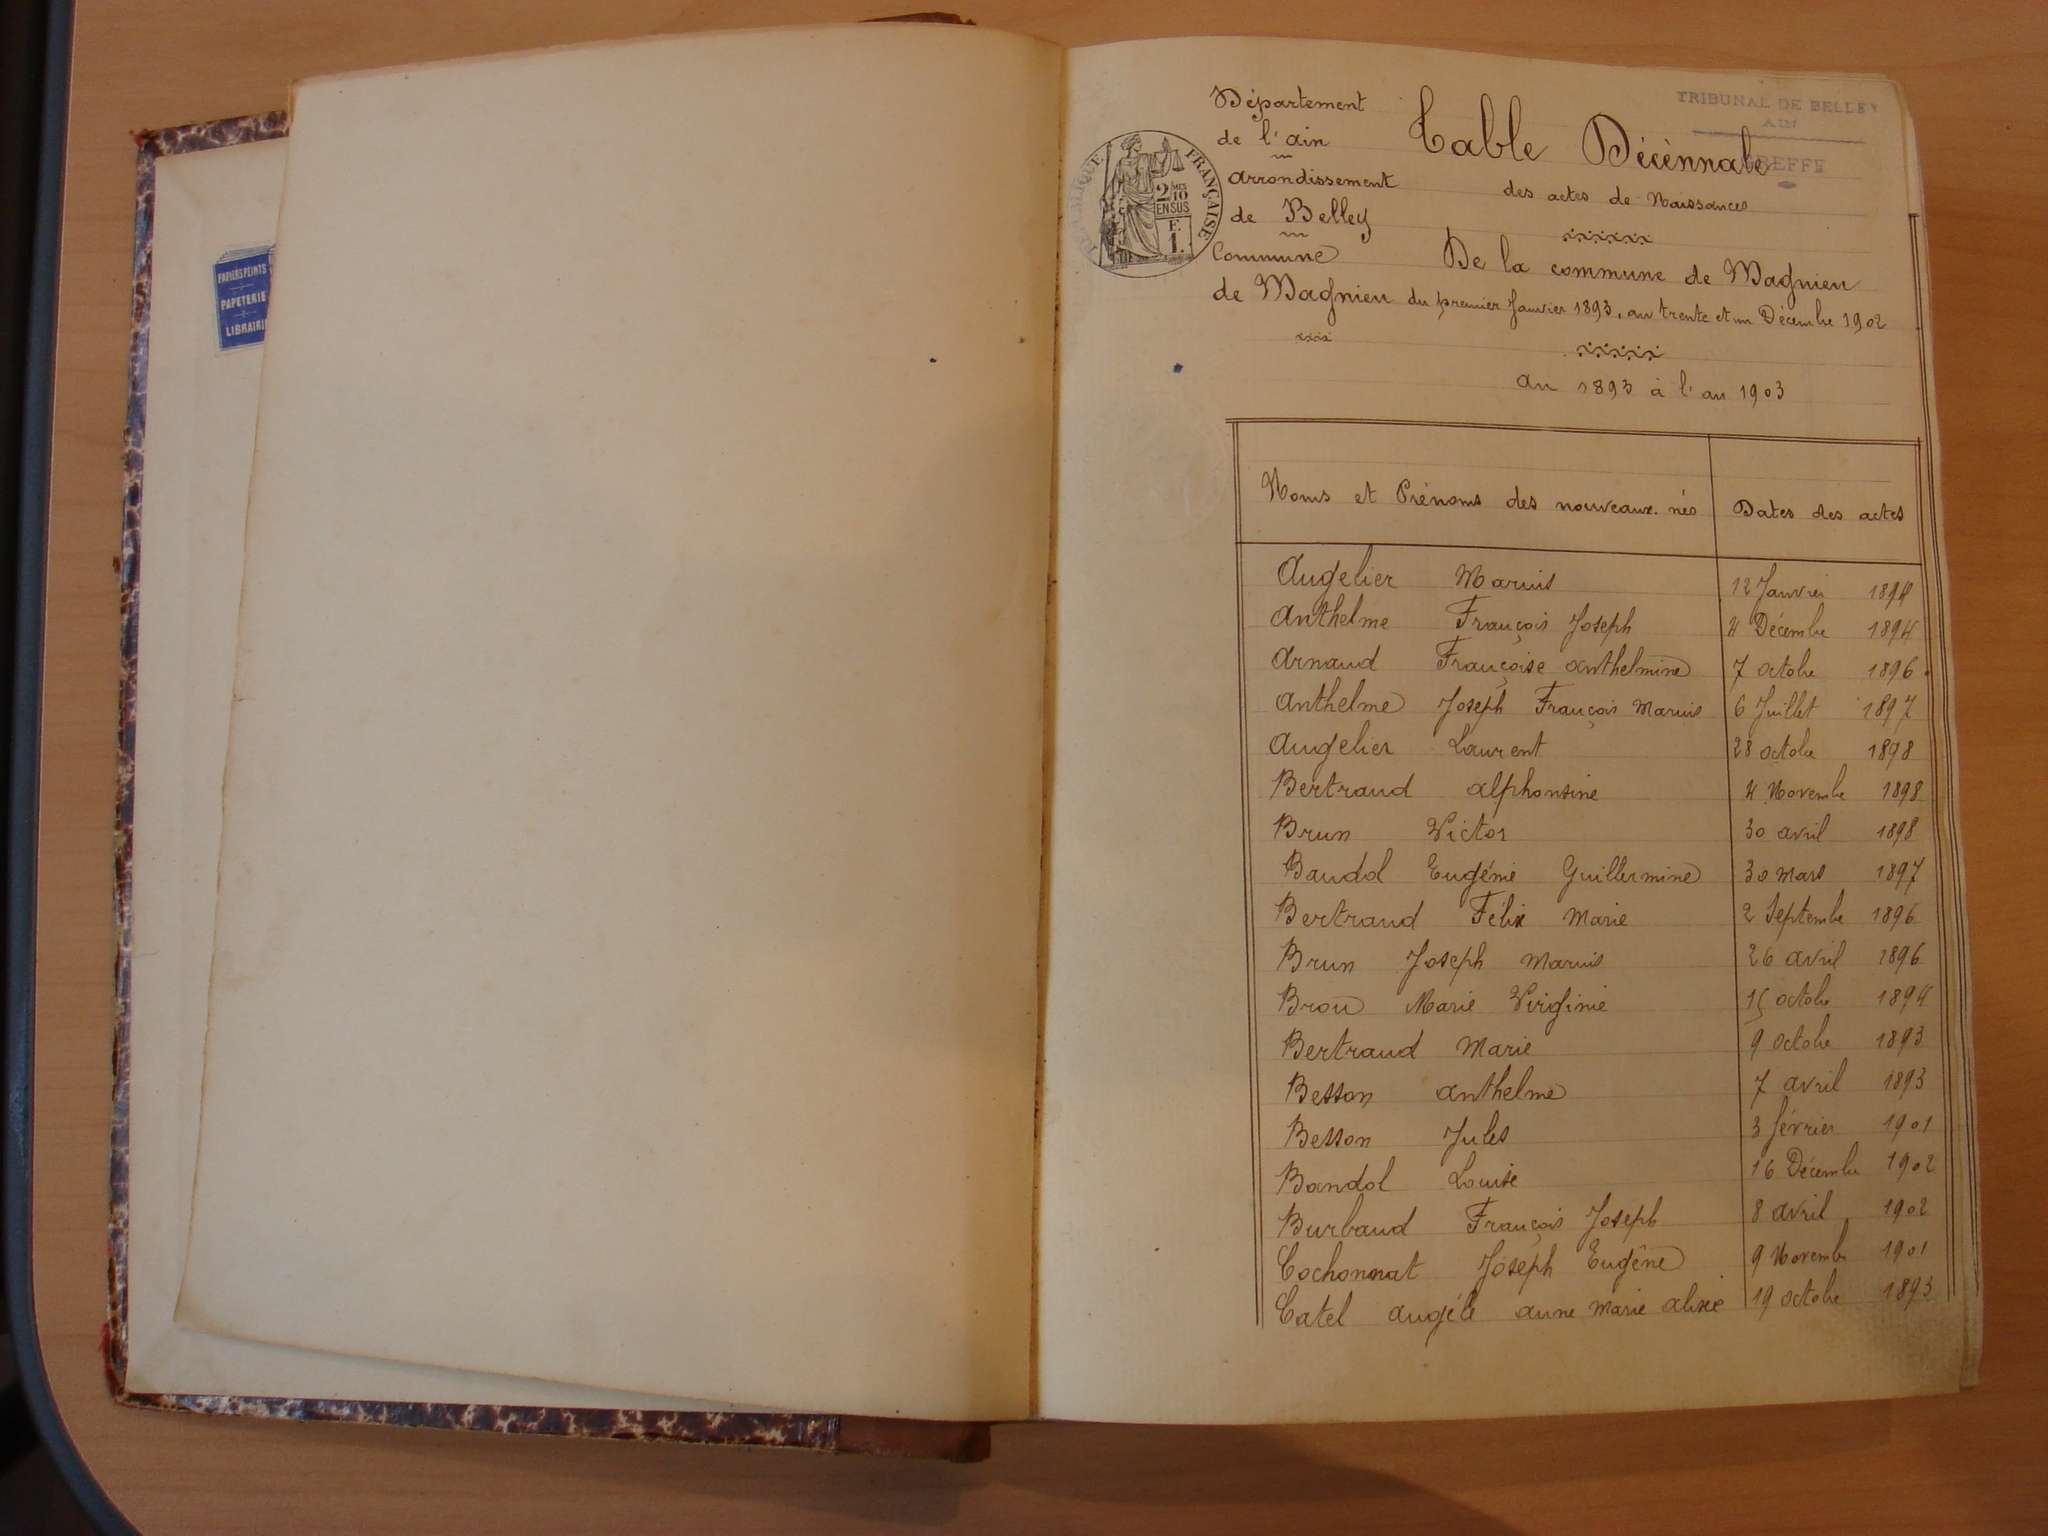 PAPIERS PEINTS
PAPETERIE
LIBRAIRIE
TRIBUNAL DE BELLEY
AIN
GREFFE
RÉPUBLIQUE FRANÇAISE
2 MES 10
EN SUS
F.
1.
Département
de l'ain
arrondissement
de Belley
Commune
de Magnieu
Table Décennale
des actes de Naissances
De la commune de Magnieu
du premier Janvier 1893, au trente et un Décembre 1902
an 1893 à l'an 1903
Noms et Prénoms des nouveaux-nés Dates des actes
Augelier Marius 12 Janvier 1894
Anthelme François Joseph 4 Décembre 1894
Arnaud Françoise Anthelmine 7 octobre 1896
Anthelme Joseph François Marius 6 Juillet 1897
Augelier Laurent 28 octobre 1898
Bertraud Alphonsine 4 Novembre 1898
Brun Victor 30 avril 1898
Baudol Eugénie Guillermine 30 mars 1897
Bertraud Félix Marie 2 Septembre 1896
Brun Joseph Marius 26 avril 1896
Brou Marie Virginie 15 octobre 1894
Bertraud Marie 9 octobre 1893
Besson Anthelme 7 avril 1893
Besson Jules 3 février 1901
Bandol Louise 16 Décembre 1902
Burbaud François Joseph 8 avril 1902
Cochonnat Joseph Eugène 9 Novembre 1901
Catel Angèle anne Marie 19 octobre 1893